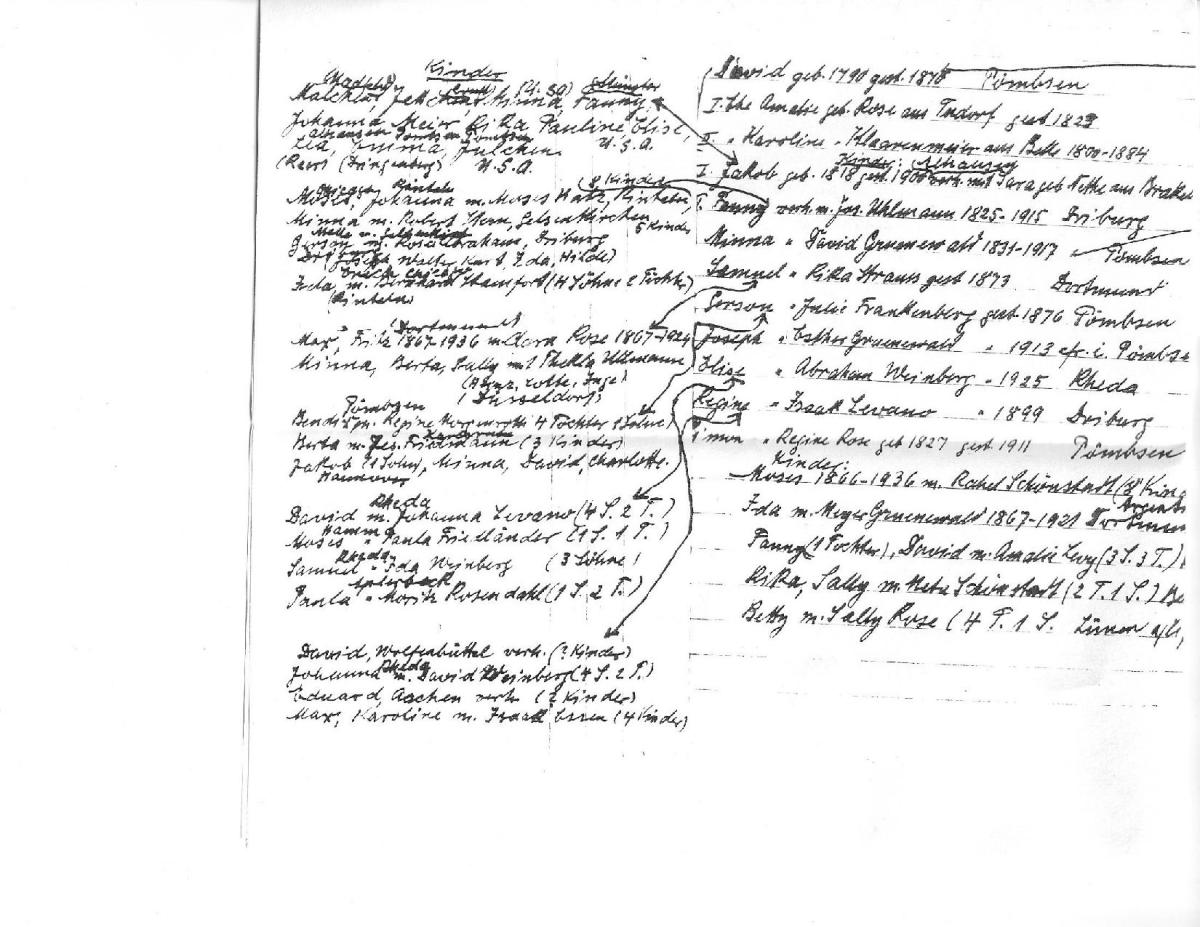 Kinder
Münster
Malchen, Jettchen, Minna, Fanny,
Johanna Meier Rika Pauline Elise,
U.S.A.
Lea, Julchen
U.S.A.
Rinteln
8 Kinder
Moses, Johanna m. Moses Katz, Rinteln,
Minna m. Robert Stern, Gelsenkirchen
5 Kinder
Gerson m. Rosa Abraham, Driburg
Joseph, Walter Kurt, Ida, Hilde)
Ida m. Bernhard Stamfort (4 Söhne 2 Töchter)
(Rinteln)
(Dortmund)
Max, Fritz 1867-1936 m. Rose 1867-1924
Minna, Berta, Sally mit Thekla Uhlmann
Lotte, Inge)
(Düsseldorf)
Pömbsen
Bendix m. Regine 4 Töchter 1 Sohn)
Berta m. Jos. Friedmann (3 Kinder)
Jakob (1 Sohn), Minna, David, Charlotte.
Hannover
Rheda
David m. Johanna Levano (4 S. 2 T.)
Hamm
Moses " Paula Friedländer (1 S. 1 T.)
Rheda
Samuel " Ida Weinberg (3 Söhne)
Paula " Moritz Rosendahl (1 S. 2 T.)
David, Wolfenbüttel verh. (? Kinder)
Rheda
Johanna m. David Weinberg (4 S. 2 T.)
Eduard, Aachen verh. (? Kinder)
Max, Karoline m. Isaak Essen (4 Kinder)
David geb. 1790 gest. 1878 Pömbsen
I. Ehe Amalie geb. Rose aus Tudorf gest 1823
II. " Karoline " Klaarenmeier aus Belle 1800-1884
Kinder: Alhausen
I. Jakob geb. 1818 gest. 1900 verh. mit Sara geb. Nethe aus Brakel
Fanny verh. m. Jos. Uhlmann 1825-1915 Driburg
Minna " David Gruenewald 1831-1917 " Pömbsen
Samuel " Rika Strauss gest 1873 Dortmund
Gerson " Julie Frankenberg gest. 1876 Pömbsen
Joseph " Esther Gruenewald " 1913 i. Pömbse
Elise " Abraham Weinberg " 1925 Rheda
Regine " Isaak Levano " 1899 Driburg
Simon " Regine Rose geb 1827 gest 1911 Pömbsen
Kinder:
Moses 1866-1936 m. Rahel Schönstadt (8 Kind
Ida m. Meyer Gruenewald 1867-1921 Dortmun
Fanny (1 Tochter), David m. Amalie Levy (3 S. 3 T.)
Rika, Sally m. Meta Schönstadt (2 T. 1 S.) Be
Betty m. Sally Rose (4 T. 1 S. Lünen